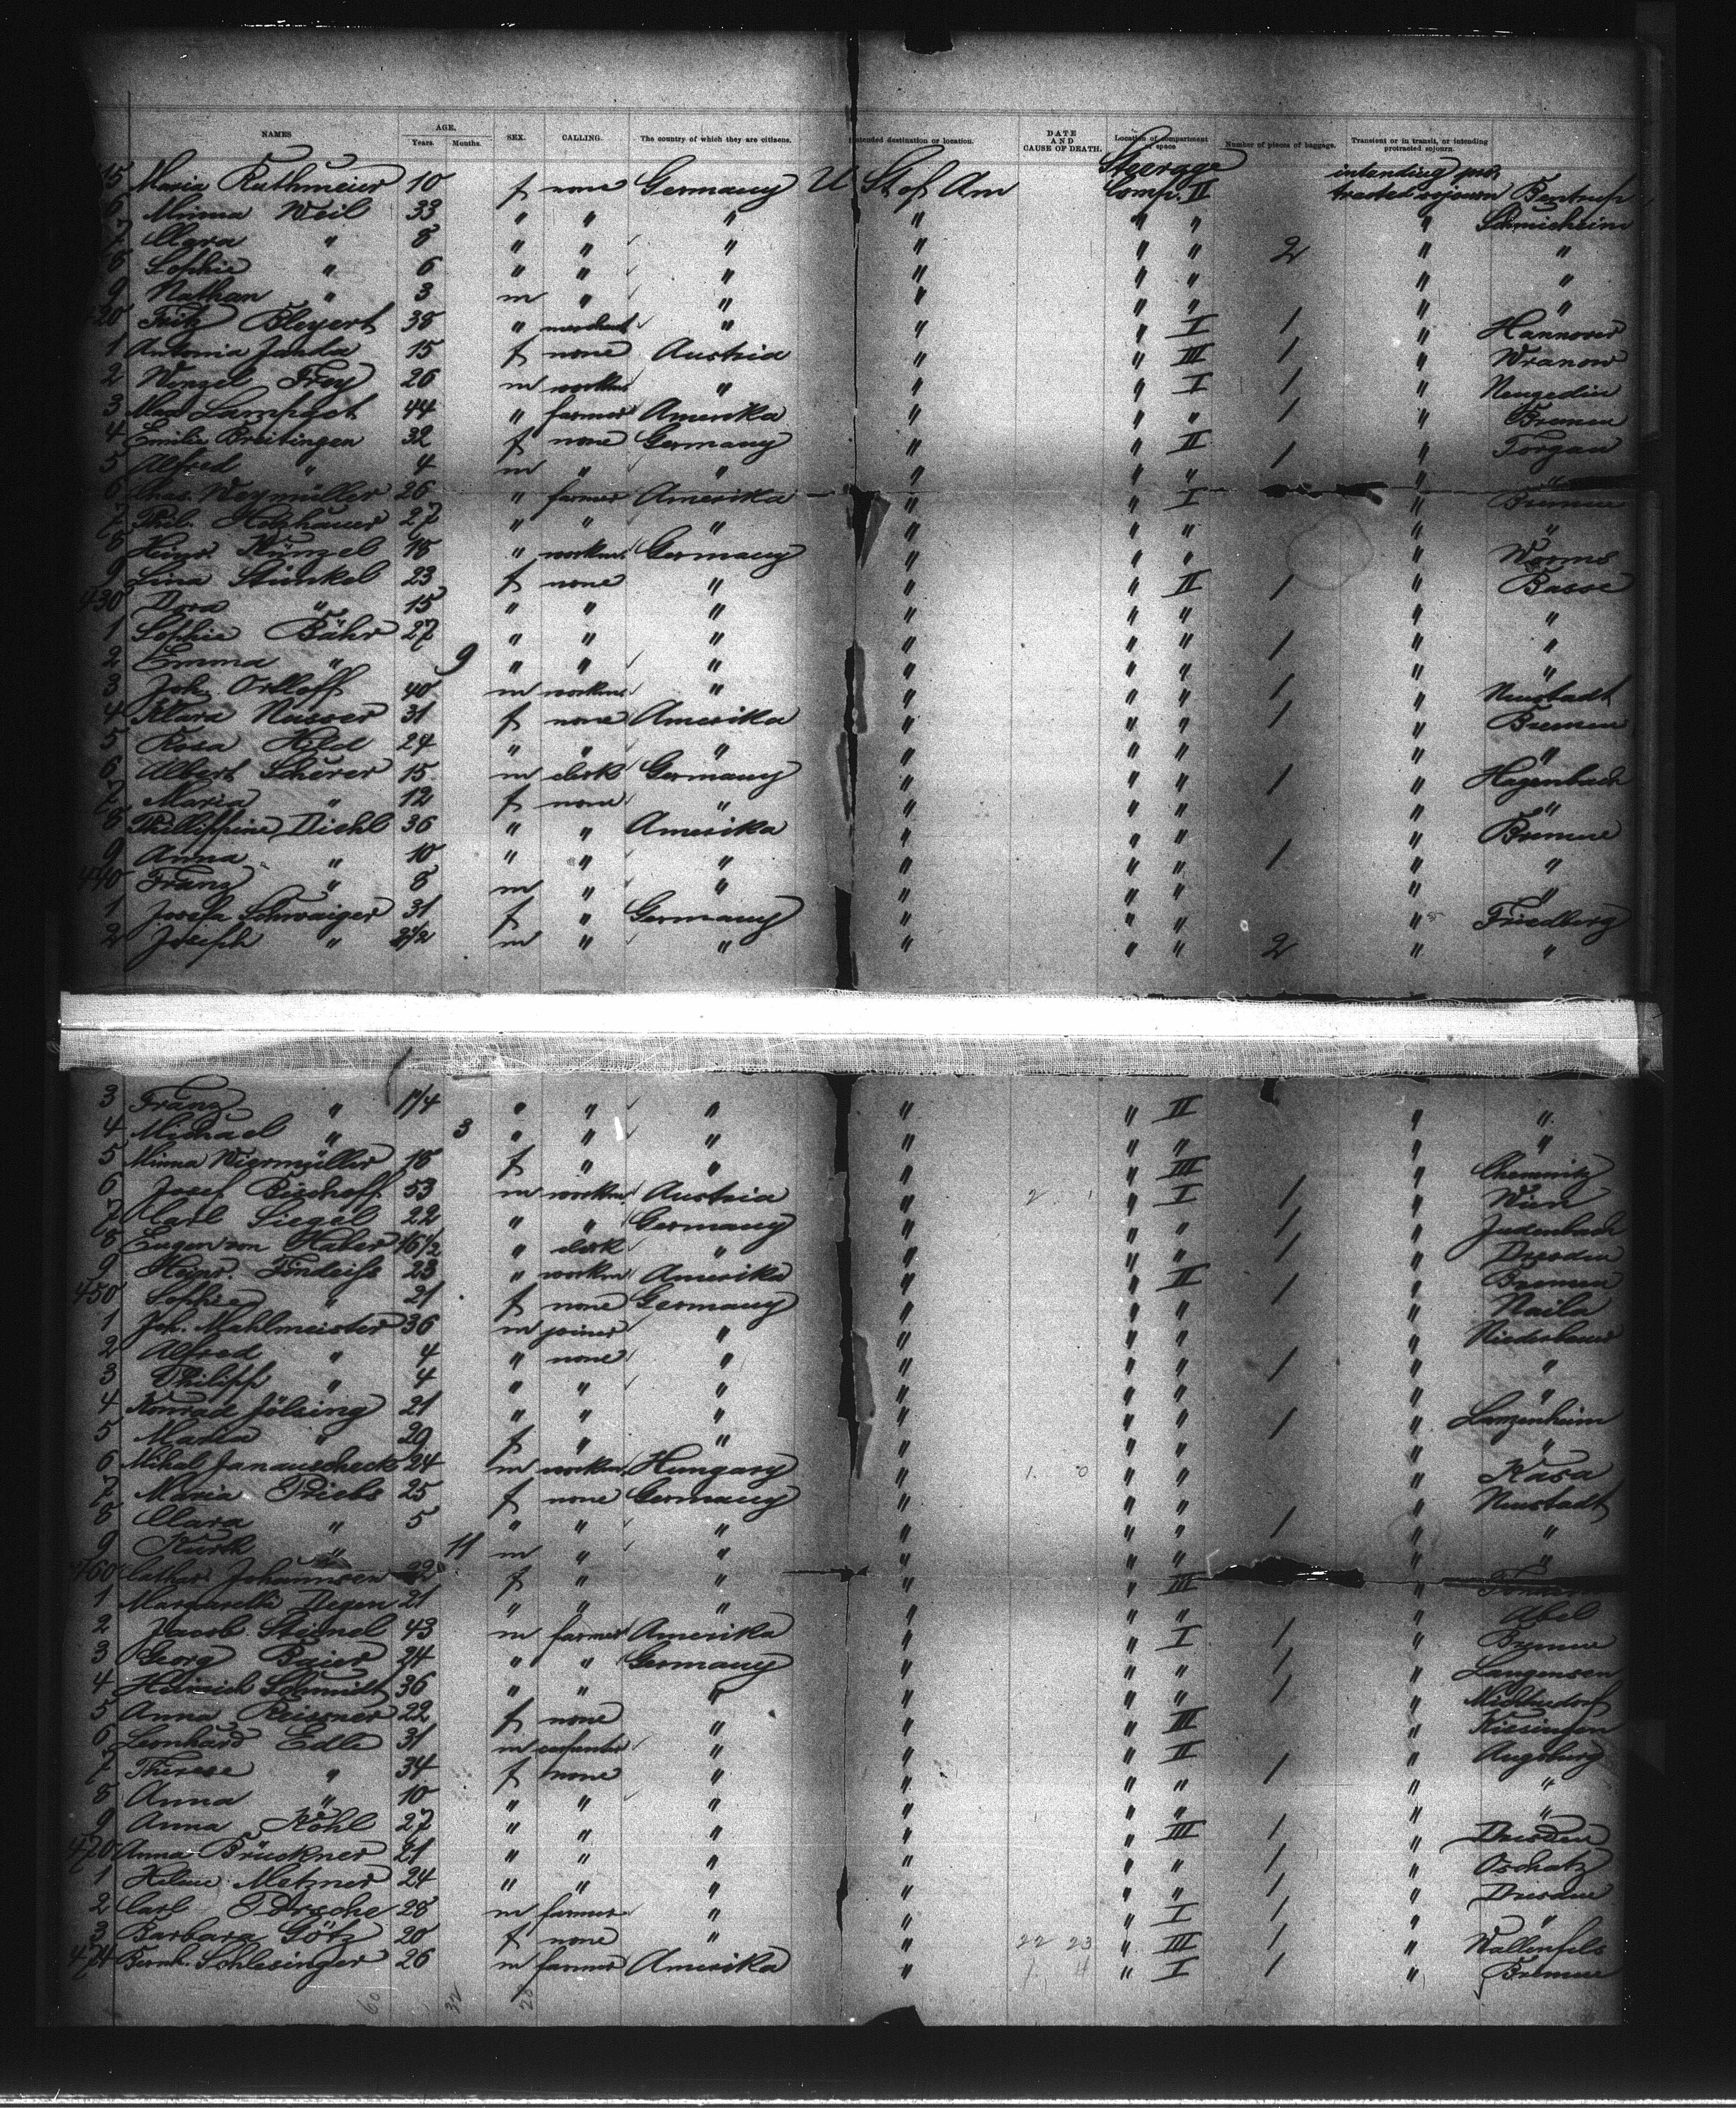 NAMES AGE. Years. Months. SEX. CALLING. The country of which they are citizens. Intended destination or location. DATE AND CAUSE OF DEATH. Location of compartment or space Number of pieces of baggage. Transient or in transit, or intending protracted sojourn.
15 Maria Ruthmeier 10 f none Germany U St of Am Steerage Comp. II intending protracted sojourn Bentrup
6 Minna Weil 33 " " " " " " " Schmieheim
7 Clara " 8 " " " " " " 2 " "
8 Sophie " 6 " " " " " " " "
9 Nathan " 3 m " " " " " " "
420 Fritz Bleyert 38 " merchant " " " I / " Hannover
1 Antonia Janda 15 f none Austria " " III / " Wranow
2 Wenzel Frey 26 m workm " " " I / " Neugedin
3 Max 44 " farmer Amerika " " " / " Bremen
4 Emilie Breitingen 32 f none Germany " " II / " Torgau
5 Alfred " 4 m " " " " " " "
6 Chas. Weymüller 26 " farmer Amerika " " I " Bremen
7 Phil. Holzhauer 27 " " " " " " " "
8 Heinr. Künzel 18 " workm Germany " " " " Worms
9 Lina Stünkel 23 f none " " " II / " Basse
430 Dora " 15 " " " " " " " "
1 Sophie Bähr 27 " " " " " " / " "
2 Emma " 9 " " " " " " " "
3 Joh. Ortloff 40 m workm " " " " / " Neustadt
4 Klara Nasser 31 f none Amerika " " " / " Bremen
5 Rosa Held 24 " " " " " " " "
6 Albert Scherer 15 m clerk Germany " " " / " Hagenbach
7 Maria " 12 f none " " " " " "
8 Phillippine Diehl 36 " " Amerika " " " " Bremen
9 Anna " 10 " " " " " " / " "
440 Franz " 8 m " " " " " " "
1 Josefa Schwaiger 31 f " Germany " " " " Friedberg
2 Joseph " 2 1/2 m " " " " " 2 " "
3 Franz " 1 1/4 " " " " " II " "
4 Michael " 3 " " " " " " " "
5 Minna Wiermüller 18 f " " " " III " Chemnitz
6 Josef Bischoff 53 m workm Austria " " I / " Wien
7 Carl Siegel 22 " " Germany " " " / " Judenbach
8 Eugen von Haber 16 1/2 " clerk " " " " / " Dresden
9 Heinr. Findeiss 23 " workm Amerika " " II / " Bremen
450 Sophie " 21 f none Germany " " " " Naila
1 Joh. Mahlmeister 36 m joiner " " " " " Niederlauer
2 Alfred " 4 " none " " " " / " "
3 Philipp " 4 " " " " " " " "
4 Konrad Jölsing 21 " " " " " " / " Lanzenheim
5 Martha " 20 f " " " " " " "
6 Mihal Janauscheck 24 m workm Hungary " " " " Kasa
7 Maria Priebs 25 f none Germany " " " " Neustadt
8 Clara " 5 " " " " " " / " "
9 Kurth " 11 m " " " " " " "
460 Cathar. Johannsen 22 f " " " " III "
1 Margaretha Degen 21 " " " " " " " Abel
2 Jacob Steinel 43 m farmer Amerika " " I / " Bremen
3 Georg Baier 24 " " Germany " " " / " Langensen
4 Heinrich Schmidt 36 " " " " " " / "
5 Anna Reissner 22 f none " " " III " Kissingen
6 Leonhard Edle 31 m carpenter " " " II / " Augsburg
7 Therese " 34 f none " " " " " "
8 Anna " 10 " " " " " " " "
9 Anna Köhl 27 " " " " " III / " Dresden
470 Anna Brückner 21 " " " " " " / " Oschatz
1 Helene Metzner 24 " " " " " " / " Dresden
2 Carl Pörsche 28 m farmer " " " I / " "
3 Barbara Götz 20 f none " " 22 23 " III / " Wallenfels
474 Bernh. Schlesinger 26 m farmer Amerika " 1 4 " I / " Bremen
60 32 28